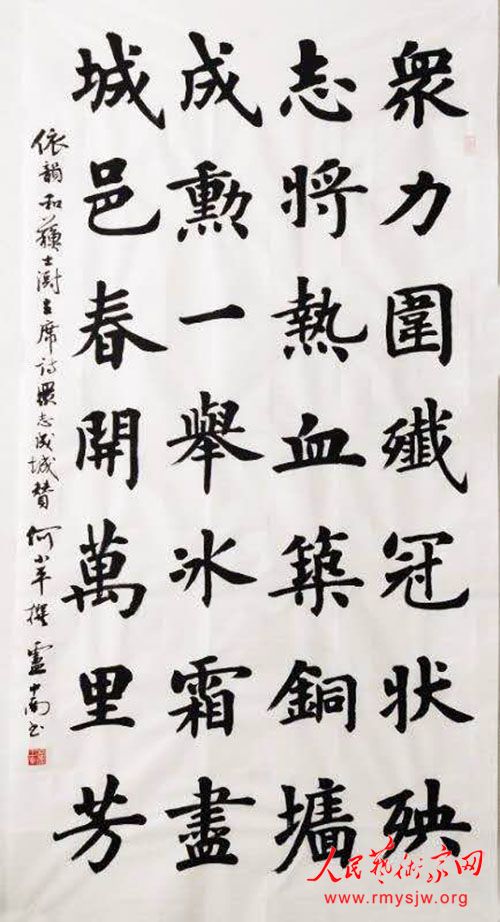 衆力圍殲冠状殃
志將熱血築銅墻
成勲一舉冰霜盡
城邑春開萬里芳
依韻和蘇士澍主席詩衆志成城贊 何小平撰 盧中南书
人民藝術家网
www.rmysjw.org